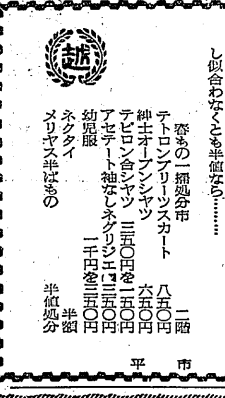 し似合わなくとも半値なら………
春もの一掃処分市　二階
テトロンプリーツスカート　八五〇円
紳士オープンシャツ　六五〇円
テビロン合シャツ　三五〇円を一五〇円
アセテート袖なしネグリジェ　三五〇円
幼児服　一千円を三五〇円
ネクタイ　半額
メリヤス半ばもの　半値処分
越
平　市